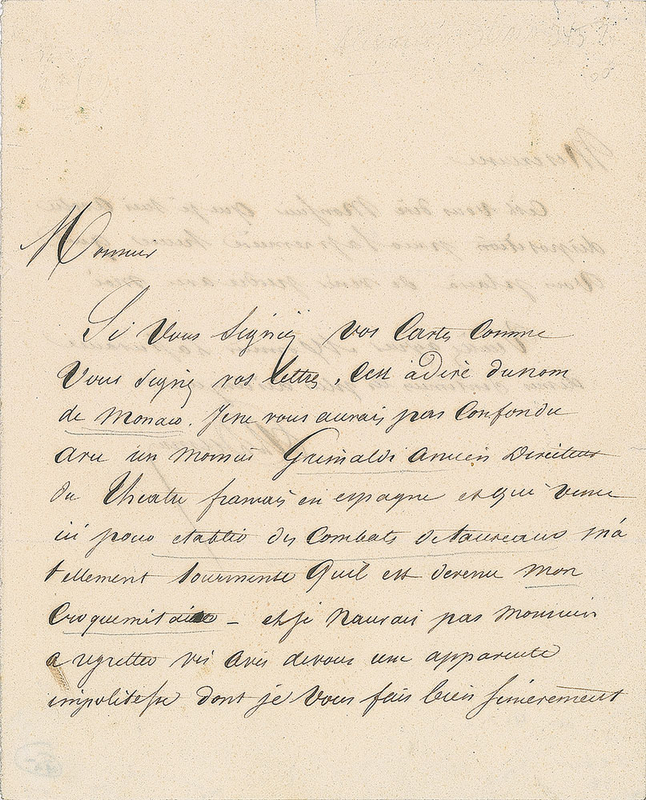 Monsieur
Si Vous Signiez vos Cartes Comme
Vous Signez vos lettres, Cest àdire dunom
de Monaco. Jene vous aurais pas Confondu
avec un Monsieur Grimaldi Ancien Directeur
du Theatre francais en espagne etqui venu
ici pour etablir des Combats detaureaux m'a
tellement tourmenté Quil est devenu Mon
Croquemitaine _ etje Naurais pas Monsieur
a regretter vis avis devous une apparente
impolitesse dont je Vous fais bien sincerement